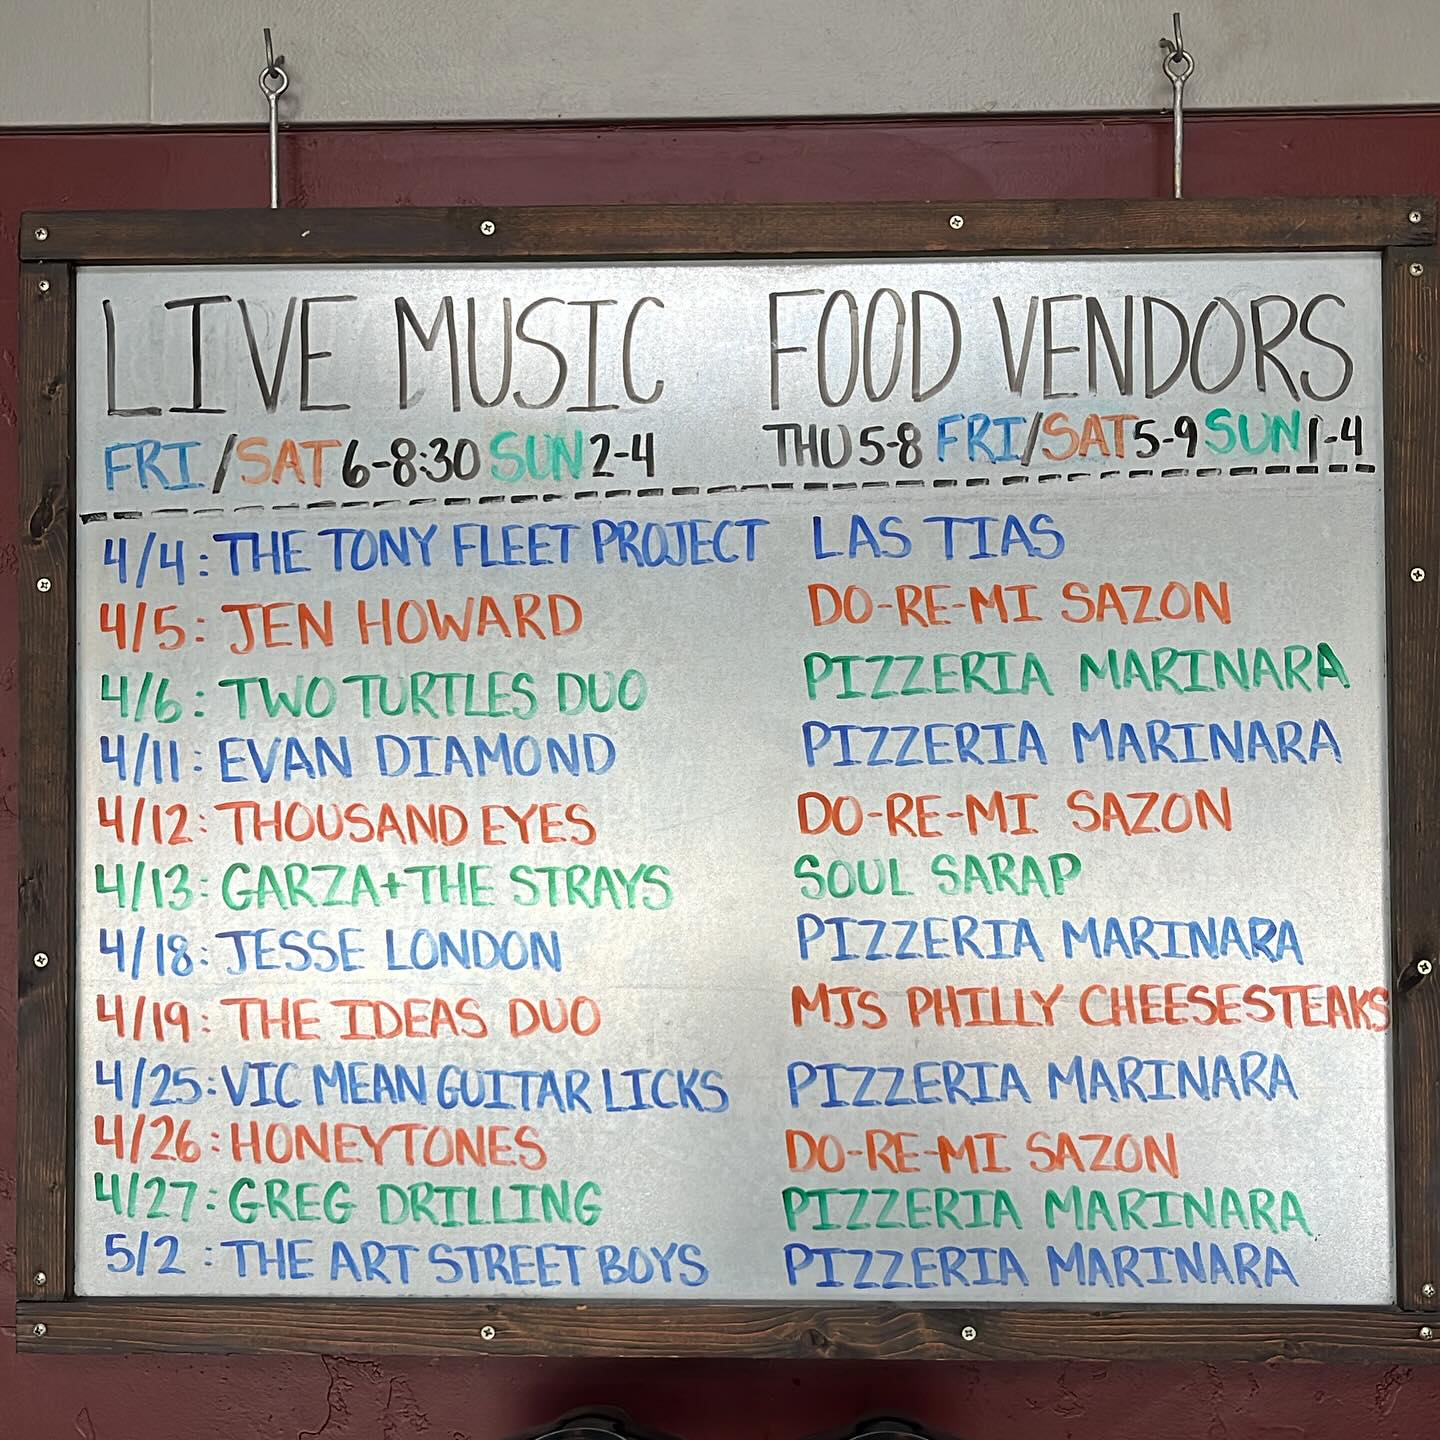 LIVE MUSIC FOOD VENDORS
FRI/SAT 6-8:30 SUN 2-4 THU 5-8 FRI/SAT 5-9 SUN 1-4
4/4: THE TONY FLEET PROJECT LAS TIAS
4/5: JEN HOWARD DO-RE-MI SAZON
4/6: TWO TURTLES DUO PIZZERIA MARINARA
4/11: EVAN DIAMOND PIZZERIA MARINARA
4/12: THOUSAND EYES DO-RE-MI SAZON
4/13: GARZA+THE STRAYS SOUL SARAP
4/18: JESSE LONDON PIZZERIA MARINARA
4/19: THE IDEAS DUO MJS PHILLY CHEESESTEAKS
4/25: VIC MEAN GUITAR LICKS PIZZERIA MARINARA
4/26: HONEYTONES DO-RE-MI SAZON
4/27: GREG DRILLING PIZZERIA MARINARA
5/2 : THE ART STREET BOYS PIZZERIA MARINARA